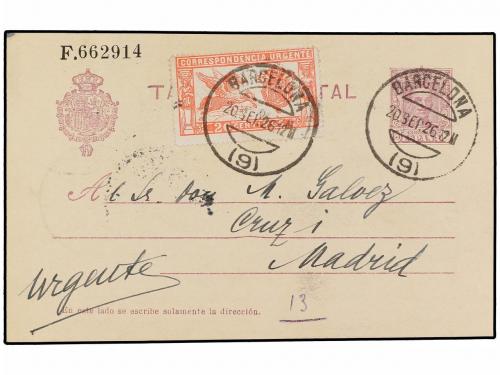 F.662914
CORRESPONDENCIA URGENTE
TA
TAL
BARCELONA
20 SET. 26. 12 M
(9)
BARCELONA
20 SET. 26. 12 M
(9)
Al Sr. don M. Galvez
Cruz 1
Madrid
Urgente
13
En este lado se escribe solamente la dirección.